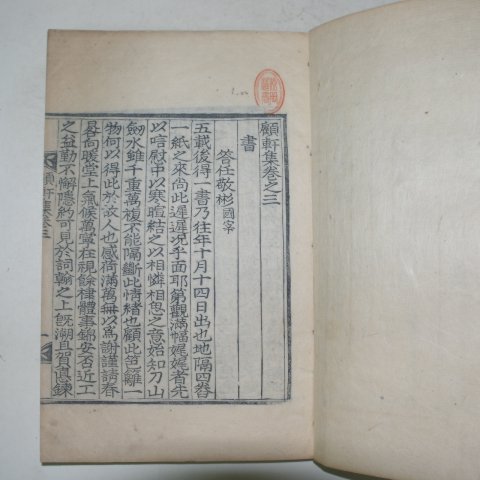 顧軒集卷之三
書
答任敬彬國宰
五載後得一書乃往年十月十四日出也地隔四沓
一紙之來尚此遲遲况乎面耶第觀滿幅娓娓者先
以唁慰中以寒暄結之以相憐相思之意始知刀山
劒水雖千重萬複不能隔斷此情緒也顧此笆籬一
物何以得此於故人也感荷滿萬無以爲謝謹請春
晷向暖堂上氣候萬寧在視餘棣體事錦安否近工
之益勤不懈隱約可見於詞翰之上旣溯且賀眞鍊
顧軒集卷三
一